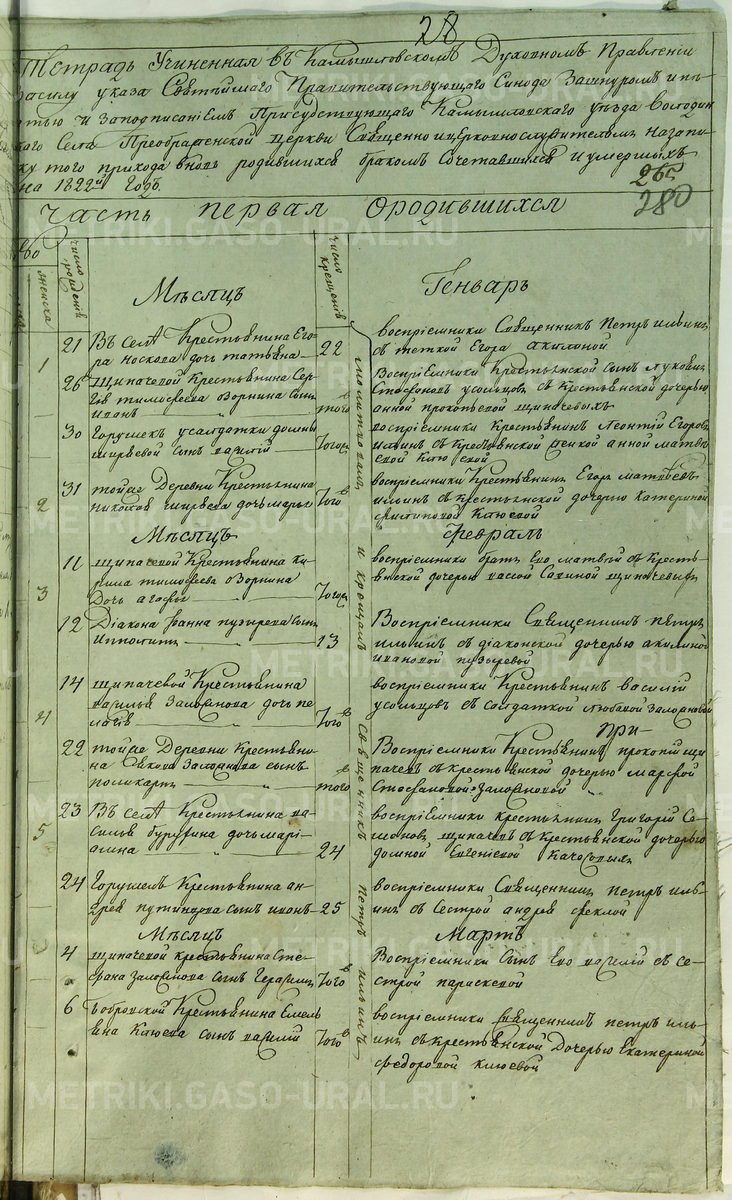 28
Тетрадь Учиненная въ Камышловскомъ Духовномъ Правленіи
всилу указа Святѣйшаго Правительствующаго Синода Зашнуромъ ипе-
чатью и Заподписаніемъ Присудствующаго Камышловскаго уѣзда
Села Преображенской Церкви Священно ицерковнослужителемъ Назапи-
ску того прихода вновь родившихся бракомъ Сочетавшихся иумершыхъ
на 1822й Годъ
280
Часть первая Ородившихся
число рожденія
женска
число крещенія
Мѣсяцъ Генварь
1 21 Въ селѣ Крестьянина Его-
ра Носкова дочь татьяна 22
воспріемники Священникъ Петръ ильинъ
съ теткой Егора акилиной
26 щипачевой Крестьянина Сер-
гея тимофеева сынъ
иванъ того
Воспріемники Крестьянской Сынъ
Стефановъ усольцовъ съ Крестьянской дочерью
анной прокопьевой щипачевыхъ
30 Горушекъ усалдатки домны
сынъ василій Тогож
воспріемники Крестьянинъ Леонтій Егоровъ
анной матвѣ-
евой
2 31 тойже Деревни Крестьянина
дочь марья Тогож
воспріемники Крестьянинъ Егоръ матвѣевъ
ильинъ съ крестьянской дочерью Катериной
филиповой Клюевой
Мѣсяцъ Февраль
3 11 щипачевой Крестьянина Ки-
рила тимофеева
Дочь агафья Тогож
воспріемники братъ Его матвѣй съ Кресть-
янской дочерью щипачевыхъ
12 Діакона Іоанна пузырева сынъ
Ипполитъ 13
Воспріемники Священникъ петръ
ильинъ съ діаконской дочерью акилиной
ивановой пузыревой
4 14 щипачевой Крестьянина
василья дочь пе-
лагія Тогож
воспріемники Крестьянинъ василій
усольцовъ съ салдаткой
при-
22 тойже Деревни Крестьяни-
на Якова сынъ
поликарпъ того
Воспріемники Крестьянинъ прокопій щи-
пачевъ съ крестьянской дочерью марфой
Стефановой
5 23 Въ селѣ Крестьянина ва-
силья дочь марі-
амна 24
воспріемники крестьянинъ Григорій Се-
меновъ щипачевъ съ Крестьянской дочерью
домной Евгеніевой
24 Горушекъ Крестьянина ан-
дрея сынъ иванъ 25
воспріемники Священникъ петръ иль-
инъ съ Сестрой андрея феклой
Мѣсяцъ Мартъ
4 щипачевой крестьянина Сте-
фана сынъ Герасимъ Тогож
Воспріемники Сынъ Его василій съ се-
строй параскевой
6 Крестьянина Емель-
яна Клюева сынъ василій Тогож
воспріемники священникъ петръ иль-
инъ съ крестьянской Дочерью Екатериной
федоровой клюевой
молитвовалъ и крещалъ Священникъ Петръ ильинъ
METRIKI.GASO-URAL.RU